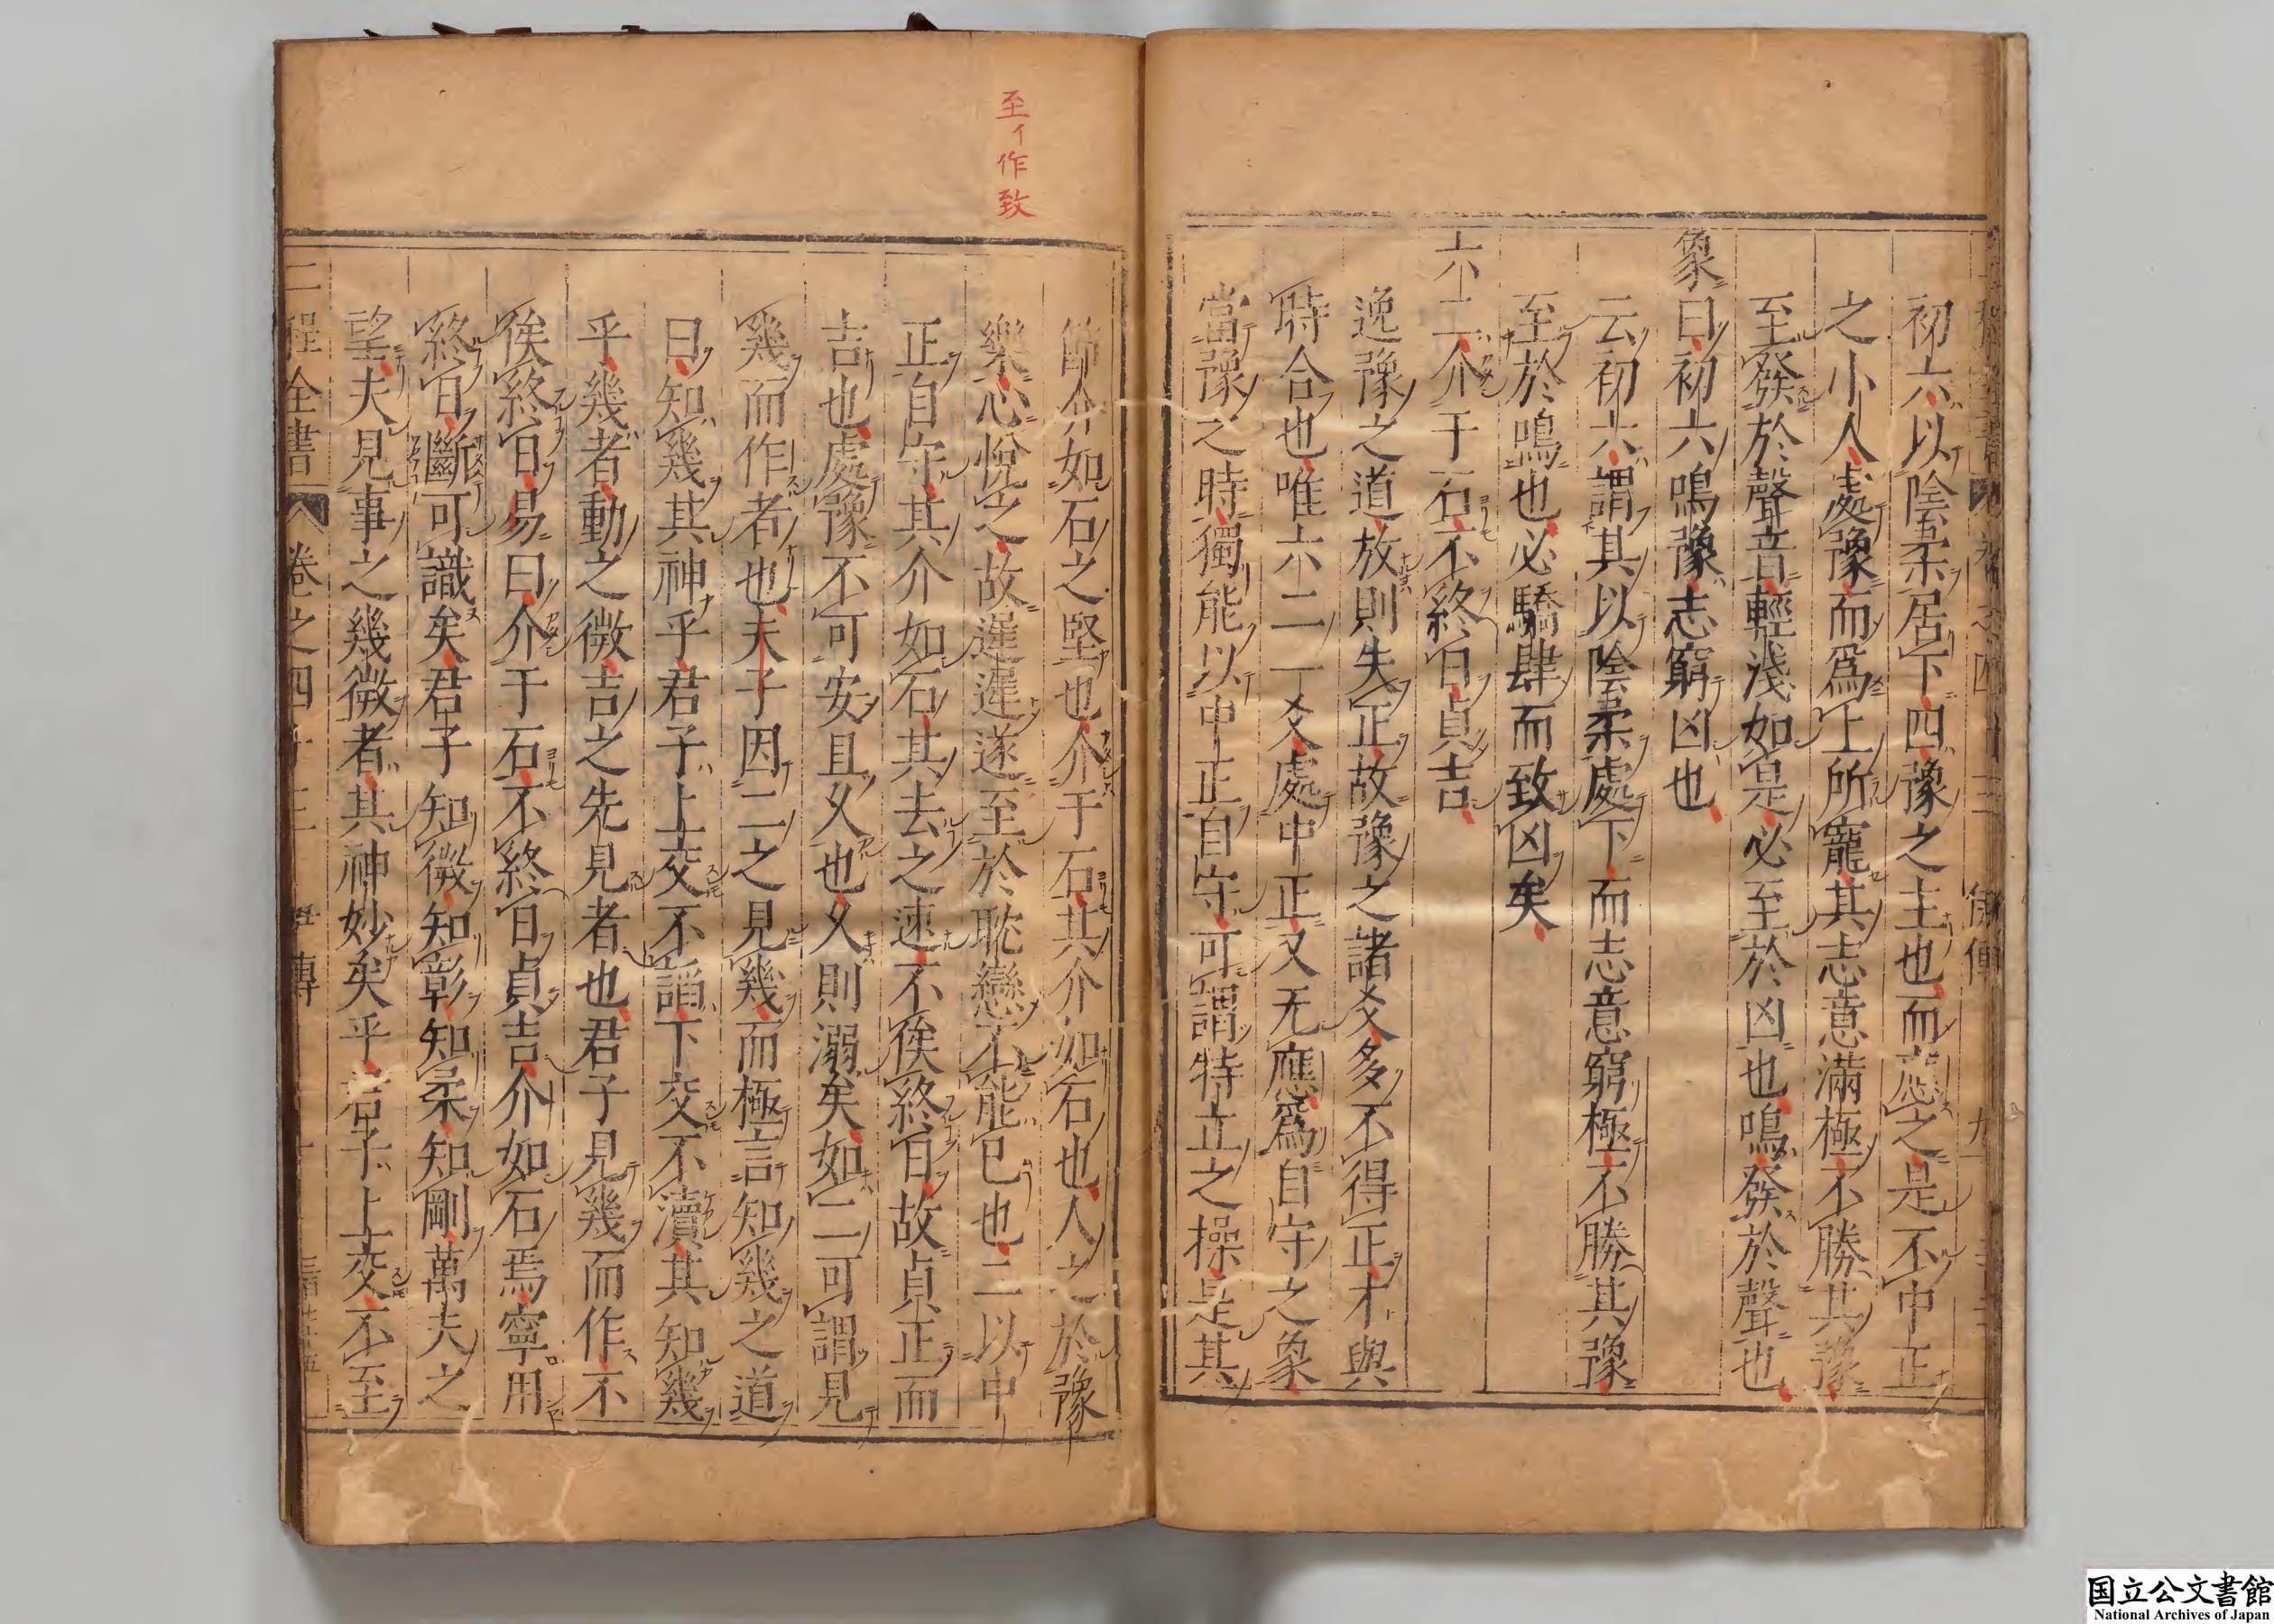 初六以陰柔居下四豫之主也而應之是不中正
之小人處豫而爲上所寵其志意滿極不勝其豫
至發於聲音輕淺如是必至於凶也鳴發於聲也
象曰初六鳴豫志窮凶也
云初六謂其以陰柔處下而志意窮極不勝其豫
至於鳴也必驕肆而致凶矣
六二介于石不終日貞吉
逸豫之道放則失正故豫之諸爻多不得正才與
時合也唯六二一爻處中正又无應爲自守之象
當豫之時獨能以中正自守可謂特立之操是其
至イ作致
節介如石之堅也介于石其介如石也人之於豫
樂志悅之故遲遲遂至於耽戀不能已也二以中
正自守其介如石其去之速不俟終日故貞正而
吉也處豫不可安且久也久則溺矣如二可謂見
幾而作者也夫子因二之見幾而極言知幾之道
曰知幾其神乎君子上交不諂下交不瀆其知幾
乎幾者動之微吉之先見者也君子見幾而作不
俟終日易曰介于石不終日貞吉介如石焉寧用
終日斷可識矣君子知微知彰知柔知剛萬夫之
望夫見事之幾微者其神妙矣乎君子上交不至
二程全書 卷之四十三
国立公文書館
National Archives of Japan